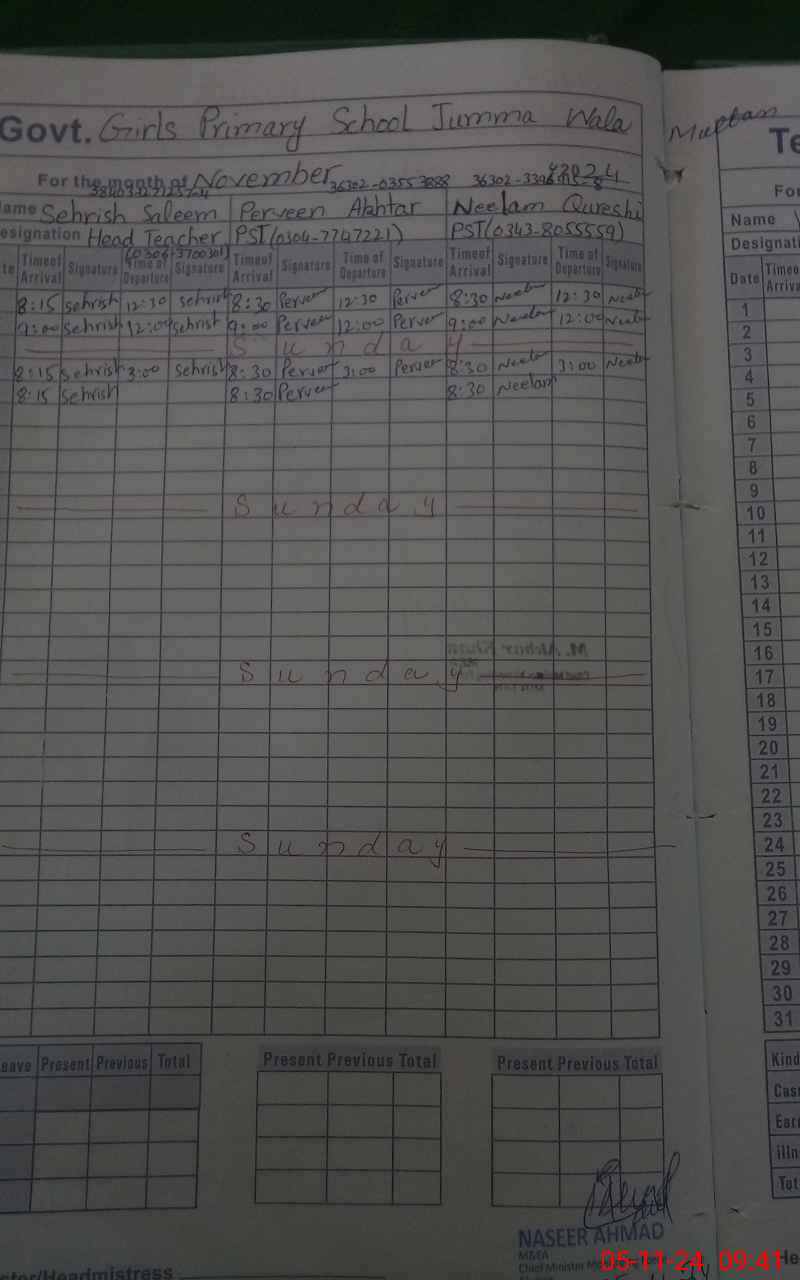 Govt. Girls Primary School Jumma Wala
Multan
Te
For the month of November 2024
36302-03553888
For
Name Sehrish Saleem Perveen Akhtar Neelam Qureshi
Name
Designation Head Teacher PST(0304-7747221) PST(0343-8055559)
Designati
(0306-3700301)
Time of Arrival Signature Time of Departure Signature Time of Arrival Signature Time of Departure Signature Time of Arrival Signature Time of Departure Signature
Date Time Arriva
8:15 Sehrish 12:30 Sehrish 8:30 Perveen 12:30 Perveen 8:30 Neelam 12:30 Neelam
1
9:00 Sehrish 12:00 Sehrish 9:00 Perveen 12:00 Perveen 9:00 Neelam 12:00 Neelam
2
Sunday
3
8:15 Sehrish 3:00 Sehrish 8:30 Perveen 3:00 Perveen 8:30 Neelam 3:00 Neelam
4
8:15 Sehrish 8:30 Perveen 8:30 Neelam
5
6
7
8
9
Sunday
10
11
12
13
14
15
M. Akbar Khan
16
Sunday
17
18
19
20
21
22
23
Sunday
24
25
26
27
28
29
30
31
eave Present Previous Total Present Previous Total Present Previous Total
Kind
Cas
Ear
illn
Tot
NASEER AHMAD
M&EA
Chief Minister
ster/Headmistress
He
05-11-24 09:41